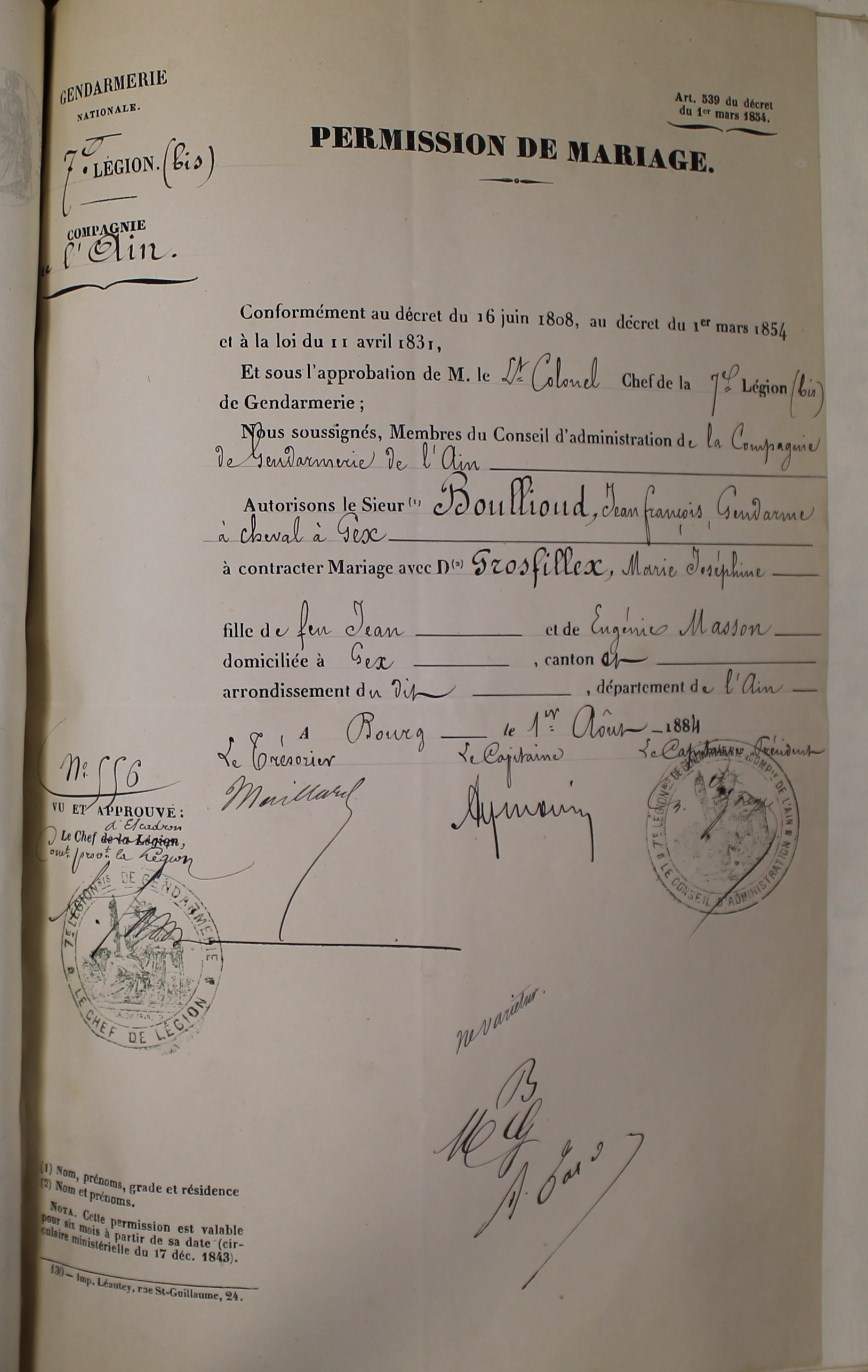 GENDARMERIE
NATIONALE.
7e. LÉGION. (bis)
COMPAGNIE
l'Ain.
Art. 539 du décret
du 1er mars 1854.
PERMISSION DE MARIAGE.
Conformément au décret du 16 juin 1808, au décret du 1er mars 1854
et à la loi du 11 avril 1831,
Et sous l'approbation de M. le Lt Colonel Chef de la 7e Légion (bis)
de Gendarmerie ;
Nous soussignés, Membres du Conseil d'administration de la Compagnie
de Gendarmerie de l'Ain
Autorisons le Sieur (1) Boullioud, Jean françois, Gendarme
à cheval à Gex
à contracter Mariage avec D(2) Grosfillex, Marie Joséphine
fille de feu Jean et de Eugénie Masson
domiciliée à Gex , canton
arrondissement du dit , département de l'Ain
A Bourg le 1er Août 1884
Le Trésorier Le Capitaine Le Capitaine Président
Maillard
Aymonin
No. 556
VU ET APPROUVÉ :
d'Escadron
Le Chef de la Légion,
comt provt la Légion
7E LÉGION BIS DE GENDARMERIE
LE CHEF DE LÉGION
7E LÉGION BIS DE GENDARMERIE COMPIE DE L'AIN
LE CONSEIL D'ADMINISTRATION
ne varietur.
B
M G
(1) Nom, prénoms, grade et résidence
(2) Nom et prénoms.
NOTA. Cette permission est valable
pour six mois à partir de sa date (cir-
culaire ministérielle du 17 déc. 1843).
130 — Imp. Léautey, rue St-Guillaume, 24.